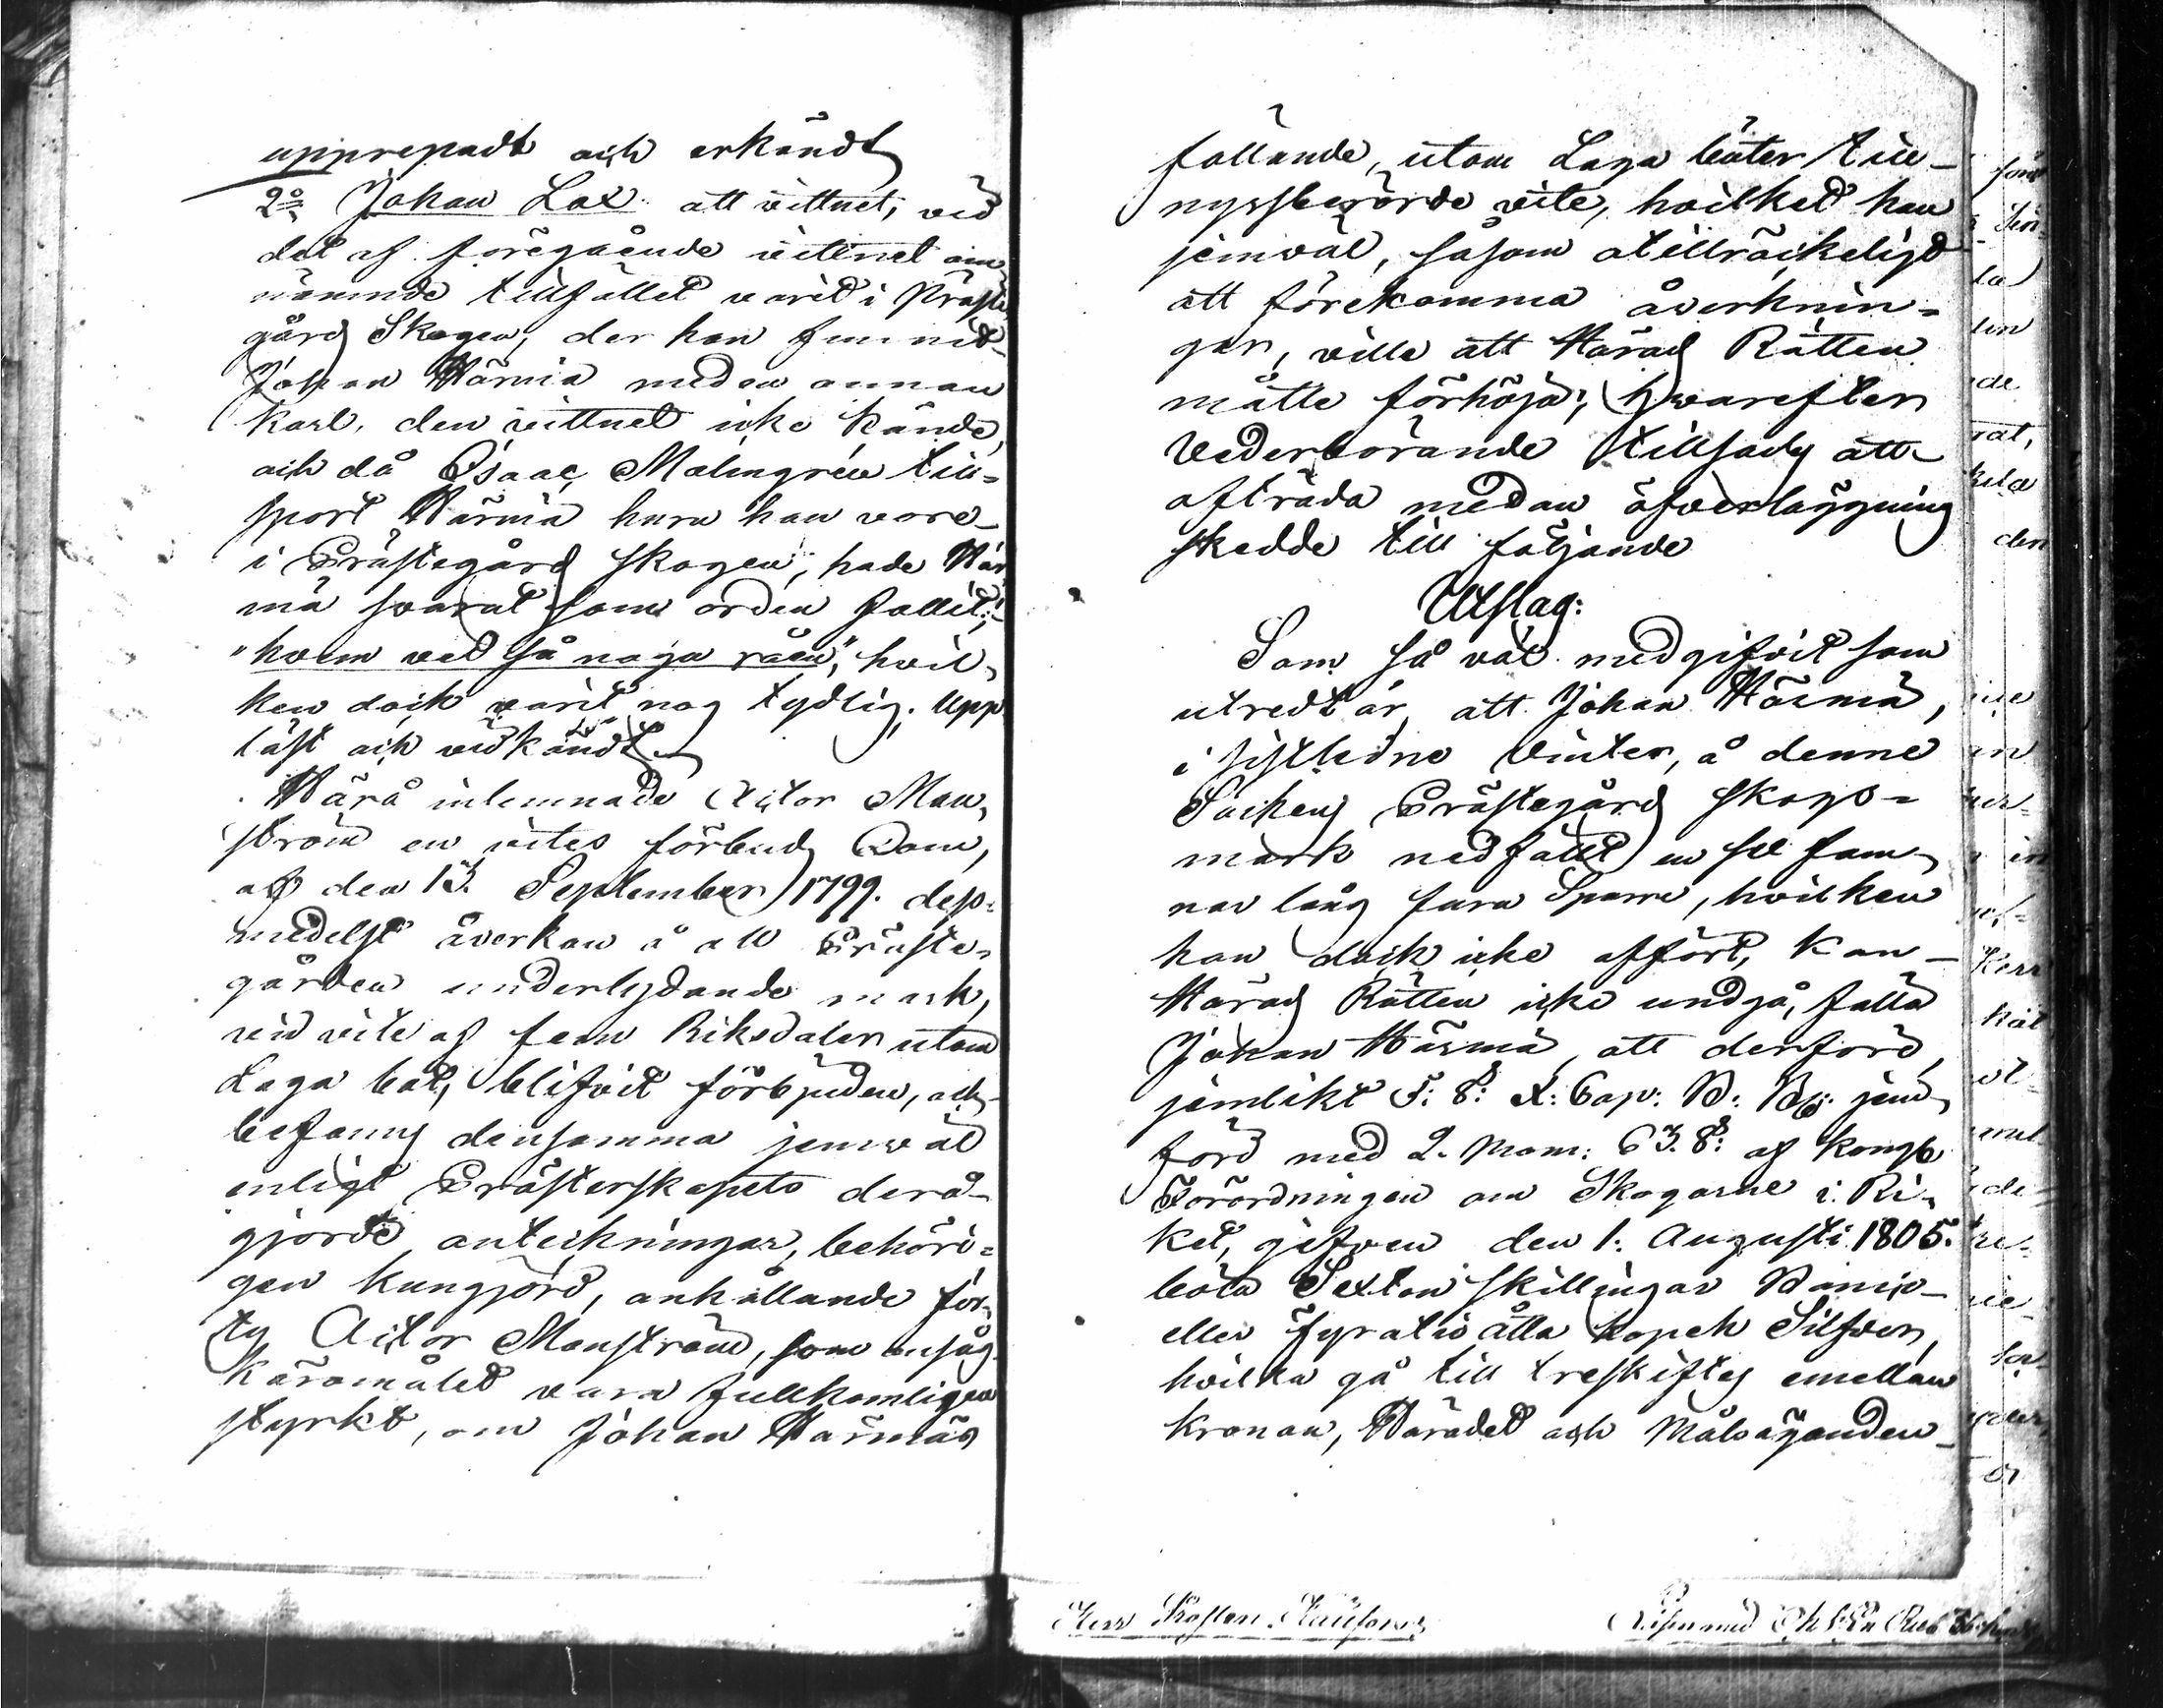 upprepadt och erkändt
2:o Johan Lax: att vittnet, vid
det af föregående vittnet om-
nämnde tillfället varit i Präste
gårds Skogen, der han funnit
Johan Härmä med en annan
karl, den vittnet icke kände,
och då Isaac Malmgrén till-
sport Härmä huru han vore
i Prästegårds skogen, hade Här
mä svarat som orden fallit:
"hvem vet så noga råen", hvil-
ken dock varit nog tydlig. Upp
läst och vidkändt.
Härå inlemnade Actor Man-
ström en vites förbuds Dom,
af den 13. September 1799. des-
medelst åverkan å all Präste-
gården underlydande mark,
vid vite af fem Riksdaler utom
Laga bot, blifvit förbjuden, och
befanns densamma jemväl
enligt Prästerskapets derå
gjorde anteckningar, behöri-
gen kungjord, anhållande för-
ty Actor Manström, som ansåg
käromålet vara fullkomligen
styrkt, om Johan Härmäs
fällande, utom Laga böter till
nyssberörde vite, hvilket han
jemväl, såsom otillräckeligt
att förekomma åverknin-
gar, ville att Härads Rätten
måtte förhöja; hvarefter
Vederbörande tillsades att
afträda medan öfverläggning
skedde till följande
Utslag:
Som så väl medgifvit som
utredt är, att Johan Härmä,
i sistledne vinter, å denne
Sockens Prästegårds skogs-
mark nedfällt en sex fam-
nar lång furu Sparre, hvilken
han dock icke affört, kan
Härads Rätten icke undgå, fälla
Johan Härmä, att derföre,
jemlikt 5. §: X: Cap: B: B: jem-
förd med 2. mom: 63. §: af Kongl.
Förordningen om Skogarne i Ri-
ket, gifven den 1. Augusti 1805.
böta Sexton skillingar Banco
eller fyratio åtta kopek Silfver,
hvilka gå till treskiftes emellan
kronan, Häradet och Målsäganden